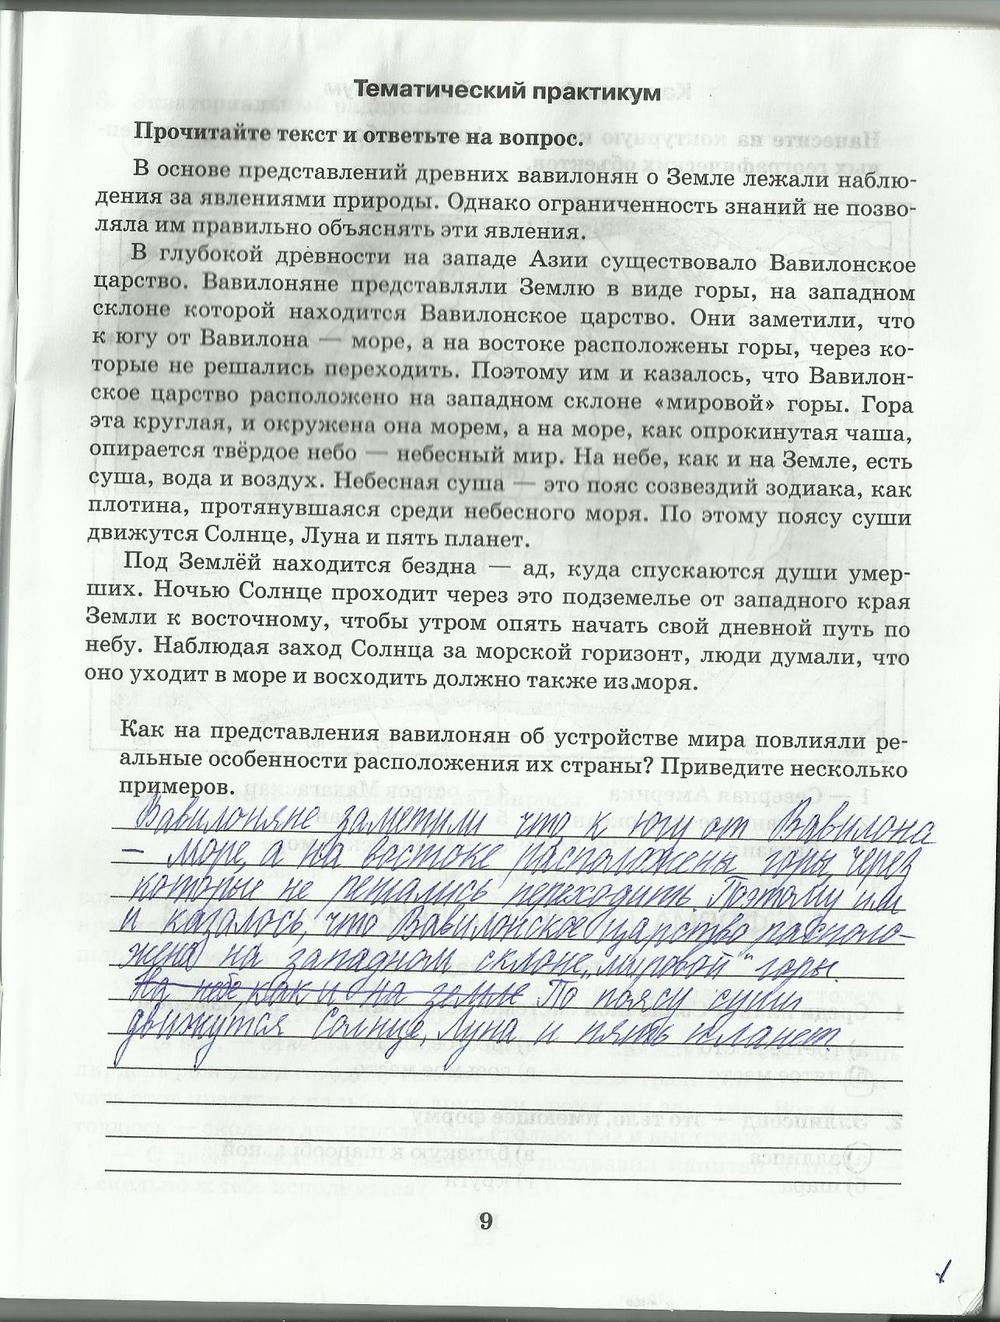 Тематический практикум
Прочитайте текст и ответьте на вопрос.
В основе представлений древних вавилонян о Земле лежали наблю-
дения за явлениями природы. Однако ограниченность знаний не позво-
ляла им правильно объяснять эти явления.
В глубокой древности на западе Азии существовало Вавилонское
царство. Вавилоняне представляли Землю в виде горы, на западном
склоне которой находится Вавилонское царство. Они заметили, что
к югу от Вавилона — море, а на востоке расположены горы, через ко-
торые не решались переходить. Поэтому им и казалось, что Вавилон-
ское царство расположено на западном склоне «мировой» горы. Гора
эта круглая, и окружена она морем, а на море, как опрокинутая чаша,
опирается твёрдое небо — небесный мир. На небе, как и на Земле, есть
суша, вода и воздух. Небесная суша — это пояс созвездий зодиака, как
плотина, протянувшаяся среди небесного моря. По этому поясу суши
движутся Солнце, Луна и пять планет.
Под Землёй находится бездна — ад, куда спускаются души умер-
ших. Ночью Солнце проходит через это подземелье от западного края
Земли к восточному, чтобы утром опять начать свой дневной путь по
небу. Наблюдая заход Солнца за морской горизонт, люди думали, что
оно уходит в море и восходить должно также из моря.
Как на представления вавилонян об устройстве мира повлияли ре-
альные особенности расположения их страны? Приведите несколько
примеров.
Вавилоняне заметили что к югу от Вавилона
– море, а на востоке расположены горы, через
которые не решались переходить. Поэтому им
и казалось, что Вавилонское царство располо-
жено на западном склоне „мировой" горы.
На небе, как и на земле По поясу суши
движутся Солнце, Луна и пять планет.
9